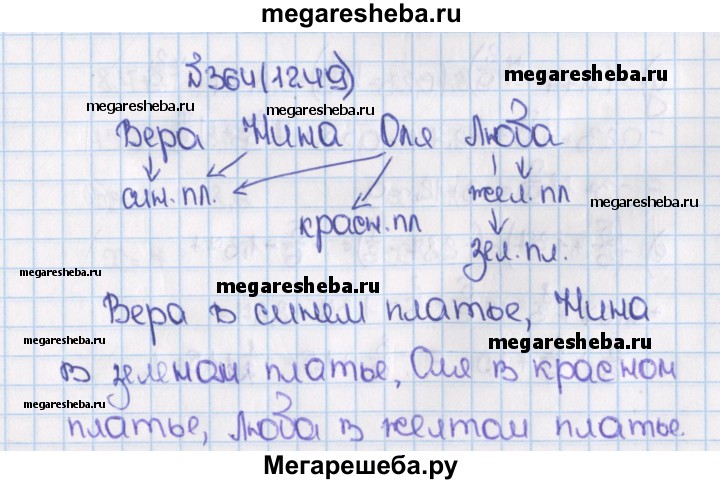 megaresheba.ru
№364(1249)
megaresheba.ru
megaresheba.ru
megaresheba.ru
Вера Нина Оля Люба
син.пл.
жел.пл
красн.пл
зел.пл.
megaresheba.ru
megaresheba.ru
Вера в синем платье, Нина
megaresheba.ru
megaresheba.ru
в зеленом платье, Оля в красном
megaresheba.ru
платье, Люба в желтом платье.
Мегарешеба.ру